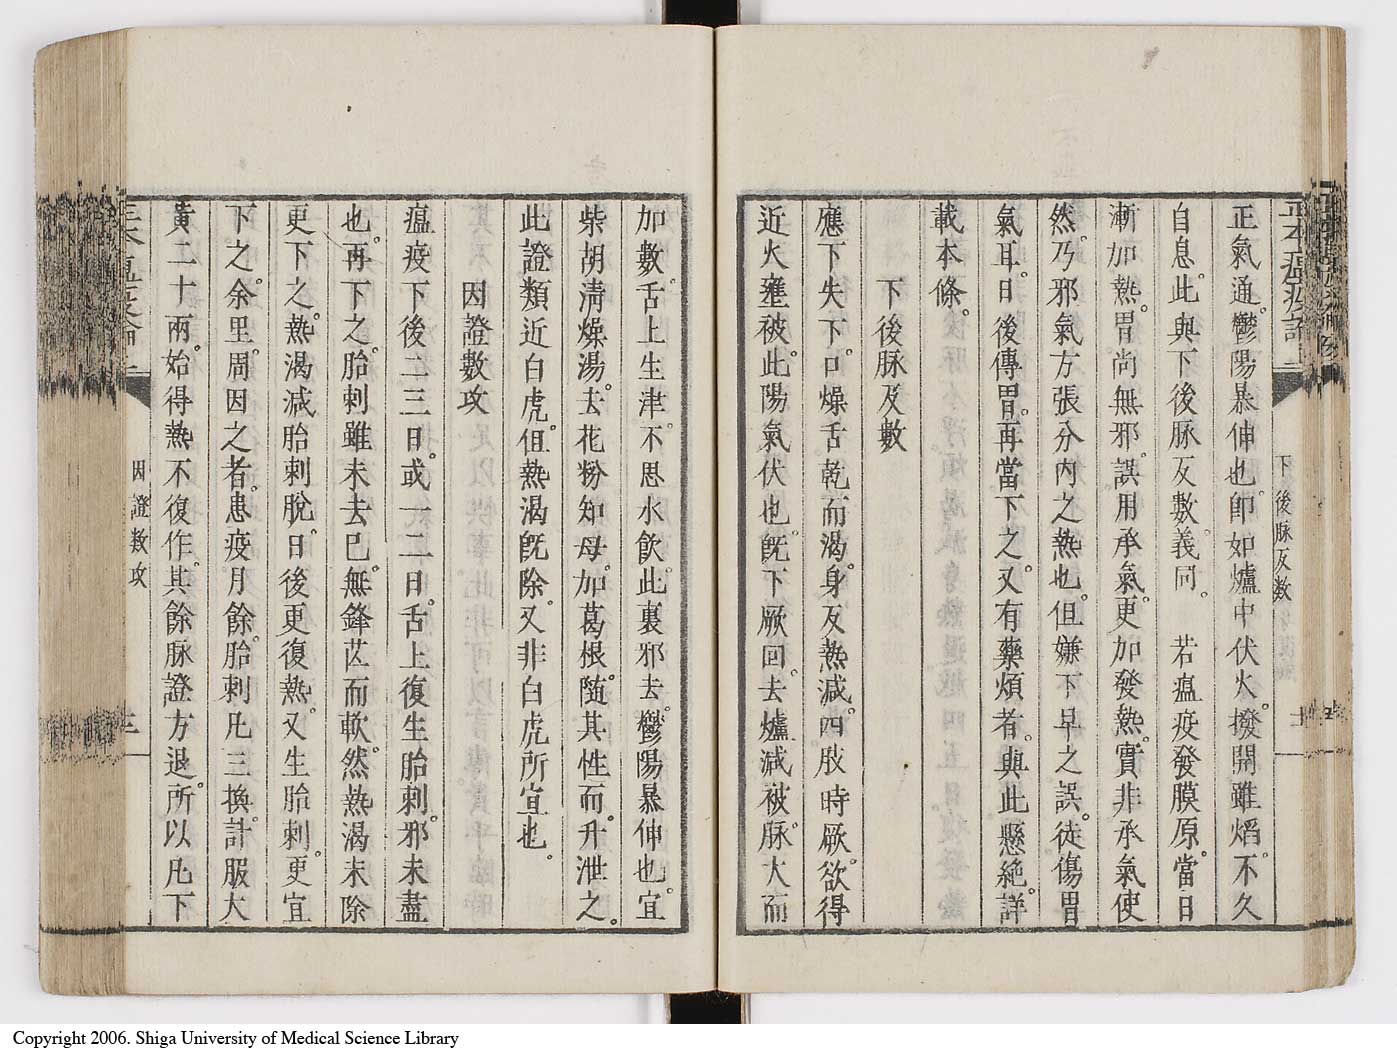 正氣通。鬱陽暴伸也。即如爐中伏火。撥開雖焰。不久
自息。此與下後脉反數義同。　若瘟疫發膜原。當日
漸加熱。胃尚無邪。誤用承氣。更加發熱。實非承氣使
然。乃邪氣方張分内之熱也。但嫌下早之誤。徒傷胃
氣耳。日後傳胃。再當下之。又有藥煩者。與此懸絶。詳
載本條。
下後脉反數
應下失下。口燥舌乾而渇。身反熱減。四肢時厥。欲得
近火壅被。此陽氣伏也。既下厥回。去爐減被。脉大而
下後脉反數
加數。舌上生津。不思水飲。此裏邪去。鬱陽暴伸也。宜
柴胡清燥湯。去花粉知母。加葛根。随其性而。升泄之。
此證類近白虎。但熱渇既除。又非白虎所宜也。
因證數攻
瘟疫下後二三日。或一二日。舌上復生胎刺。邪未盡
也。再下之。胎刺雖未去。已無鋒芒而軟。然熱渇未除
更下之。熱渇減。胎刺脫。日後更復熱。又生胎刺。更宜
下之。余里。周因之者。患疫月餘。胎刺凡三換。計服大
黃二十兩。始得熱不復作。其餘脉證方退。所以凡下
因證數攻